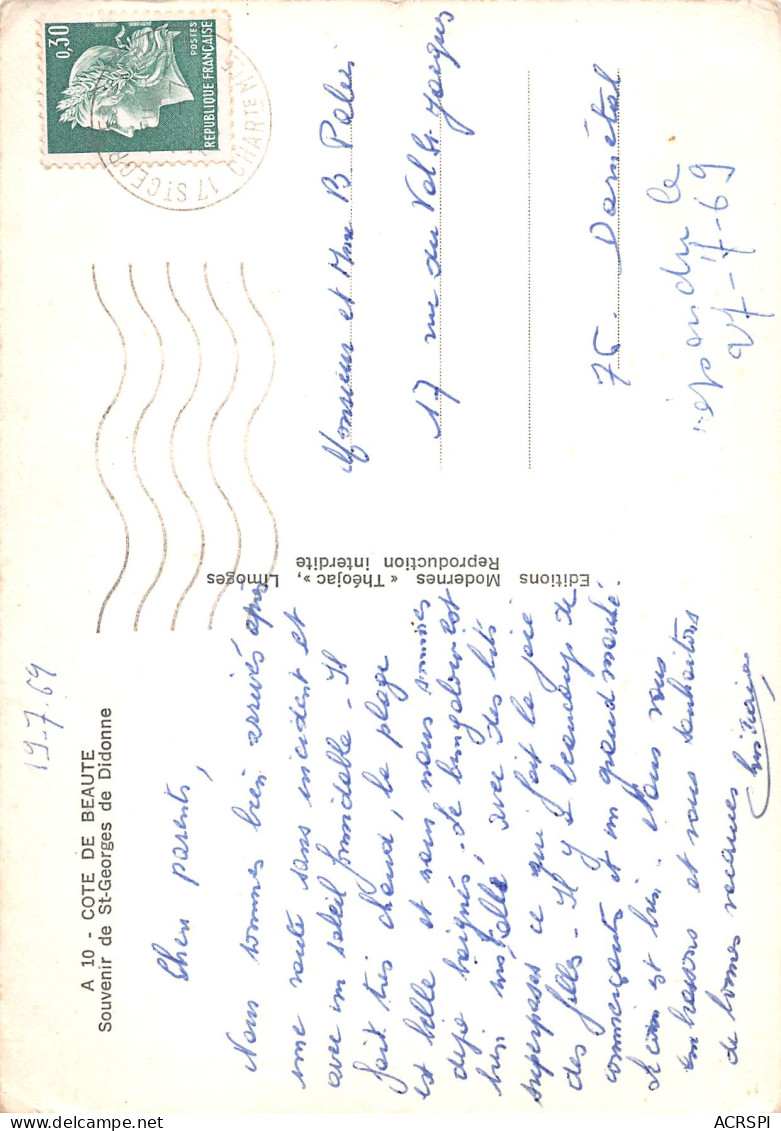 A 10 - COTE DE BEAUTE
Souvenir de St-Georges de Didonne
19-7-69
Chers parents,
Nous sommes bien arrivés après
une route sans incident et
avec un soleil formidable - Il
fait très chaud, la plage
est belle et nous nous sommes
déjà baignés - Le bungalow est
bien installé, avec des lits
superposés ce qui fait la joie
des filles - Il y a beaucoup de
commerçants et un grand marché.
Le coin est bien. Nous vous
embrassons et vous souhaitons
de bonnes vacances
Editions Modernes « Théojac », Limoges
Reproduction interdite
0,30
POSTES
REPUBLIQUE FRANÇAISE
17 ST GEORGES
CHARTE MME
Monsieur et Mme B.
17 rue du Val St Jacques
76. Darnétal
répondu le
27-7-69
ACRSPI